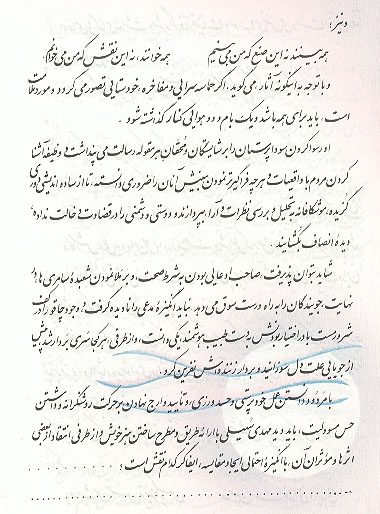 و نیز :
همه بینند نه این صنع که من می بینم همه خوانند، نه این نقش که من می خوانم
و با توجه به اینگونه آثار، می گوید، اگر حماسه سرایی و مفاخره، خودستایی تصور می گردد و مورد ملامت
است، باید برای همه باشد و یک بام و دو هوایی کنار گذاشته شود .
او رسوا کردن سودا پرستان را بر شایستگان و محققان هر مقوله رسالت می پنداشت و وظیفه آشنا
کردن مردم با واقعیات و هر چه فراگیرتر نمودن بینش آنان را ضروری دانسته، تا از ساده اندیشی دوری
گزیده، موشکافانه به تحلیل و بررسی نظرات و آراء بپردازند و دوستی و دشمنی را در قضاوت دخالت نداده
دیده انصاف بگشایند .
شاید بتوان پذیرفت، صاحب ادعایی بودن به شرط صحت، و برملا نمودن شعبده سامری ها، در
نهایت، جویندگان را به راه درست سوق می دهد، نباید انگیزه مدعی را نادیده گرفت؛ وجود چاقو را در کف
شرور است یا در اختیار بودنش به دست طبیب هوشمند یکی دانست، و از طرفی، هر کجا سری بر دار شد پیش
از جویایی علت دل سوزانید و بر دار زننده اش نفرین کرد .
با مردود دانستن علل خود پرستی و حسد ورزی، و تایید و ارج نهادن بر حرکت روشنگرانه و داشتن
حس مسئولیت، باید دید مهدی سهیلی با ارائه طریق و مطرح ساختن هنر خویش و از طرفی انتقاد از بعضی
اثرها و مؤثران آن، با انگیزه احتمالی ایجاد مقایسه، ایفاگر کدام نقش است ؛